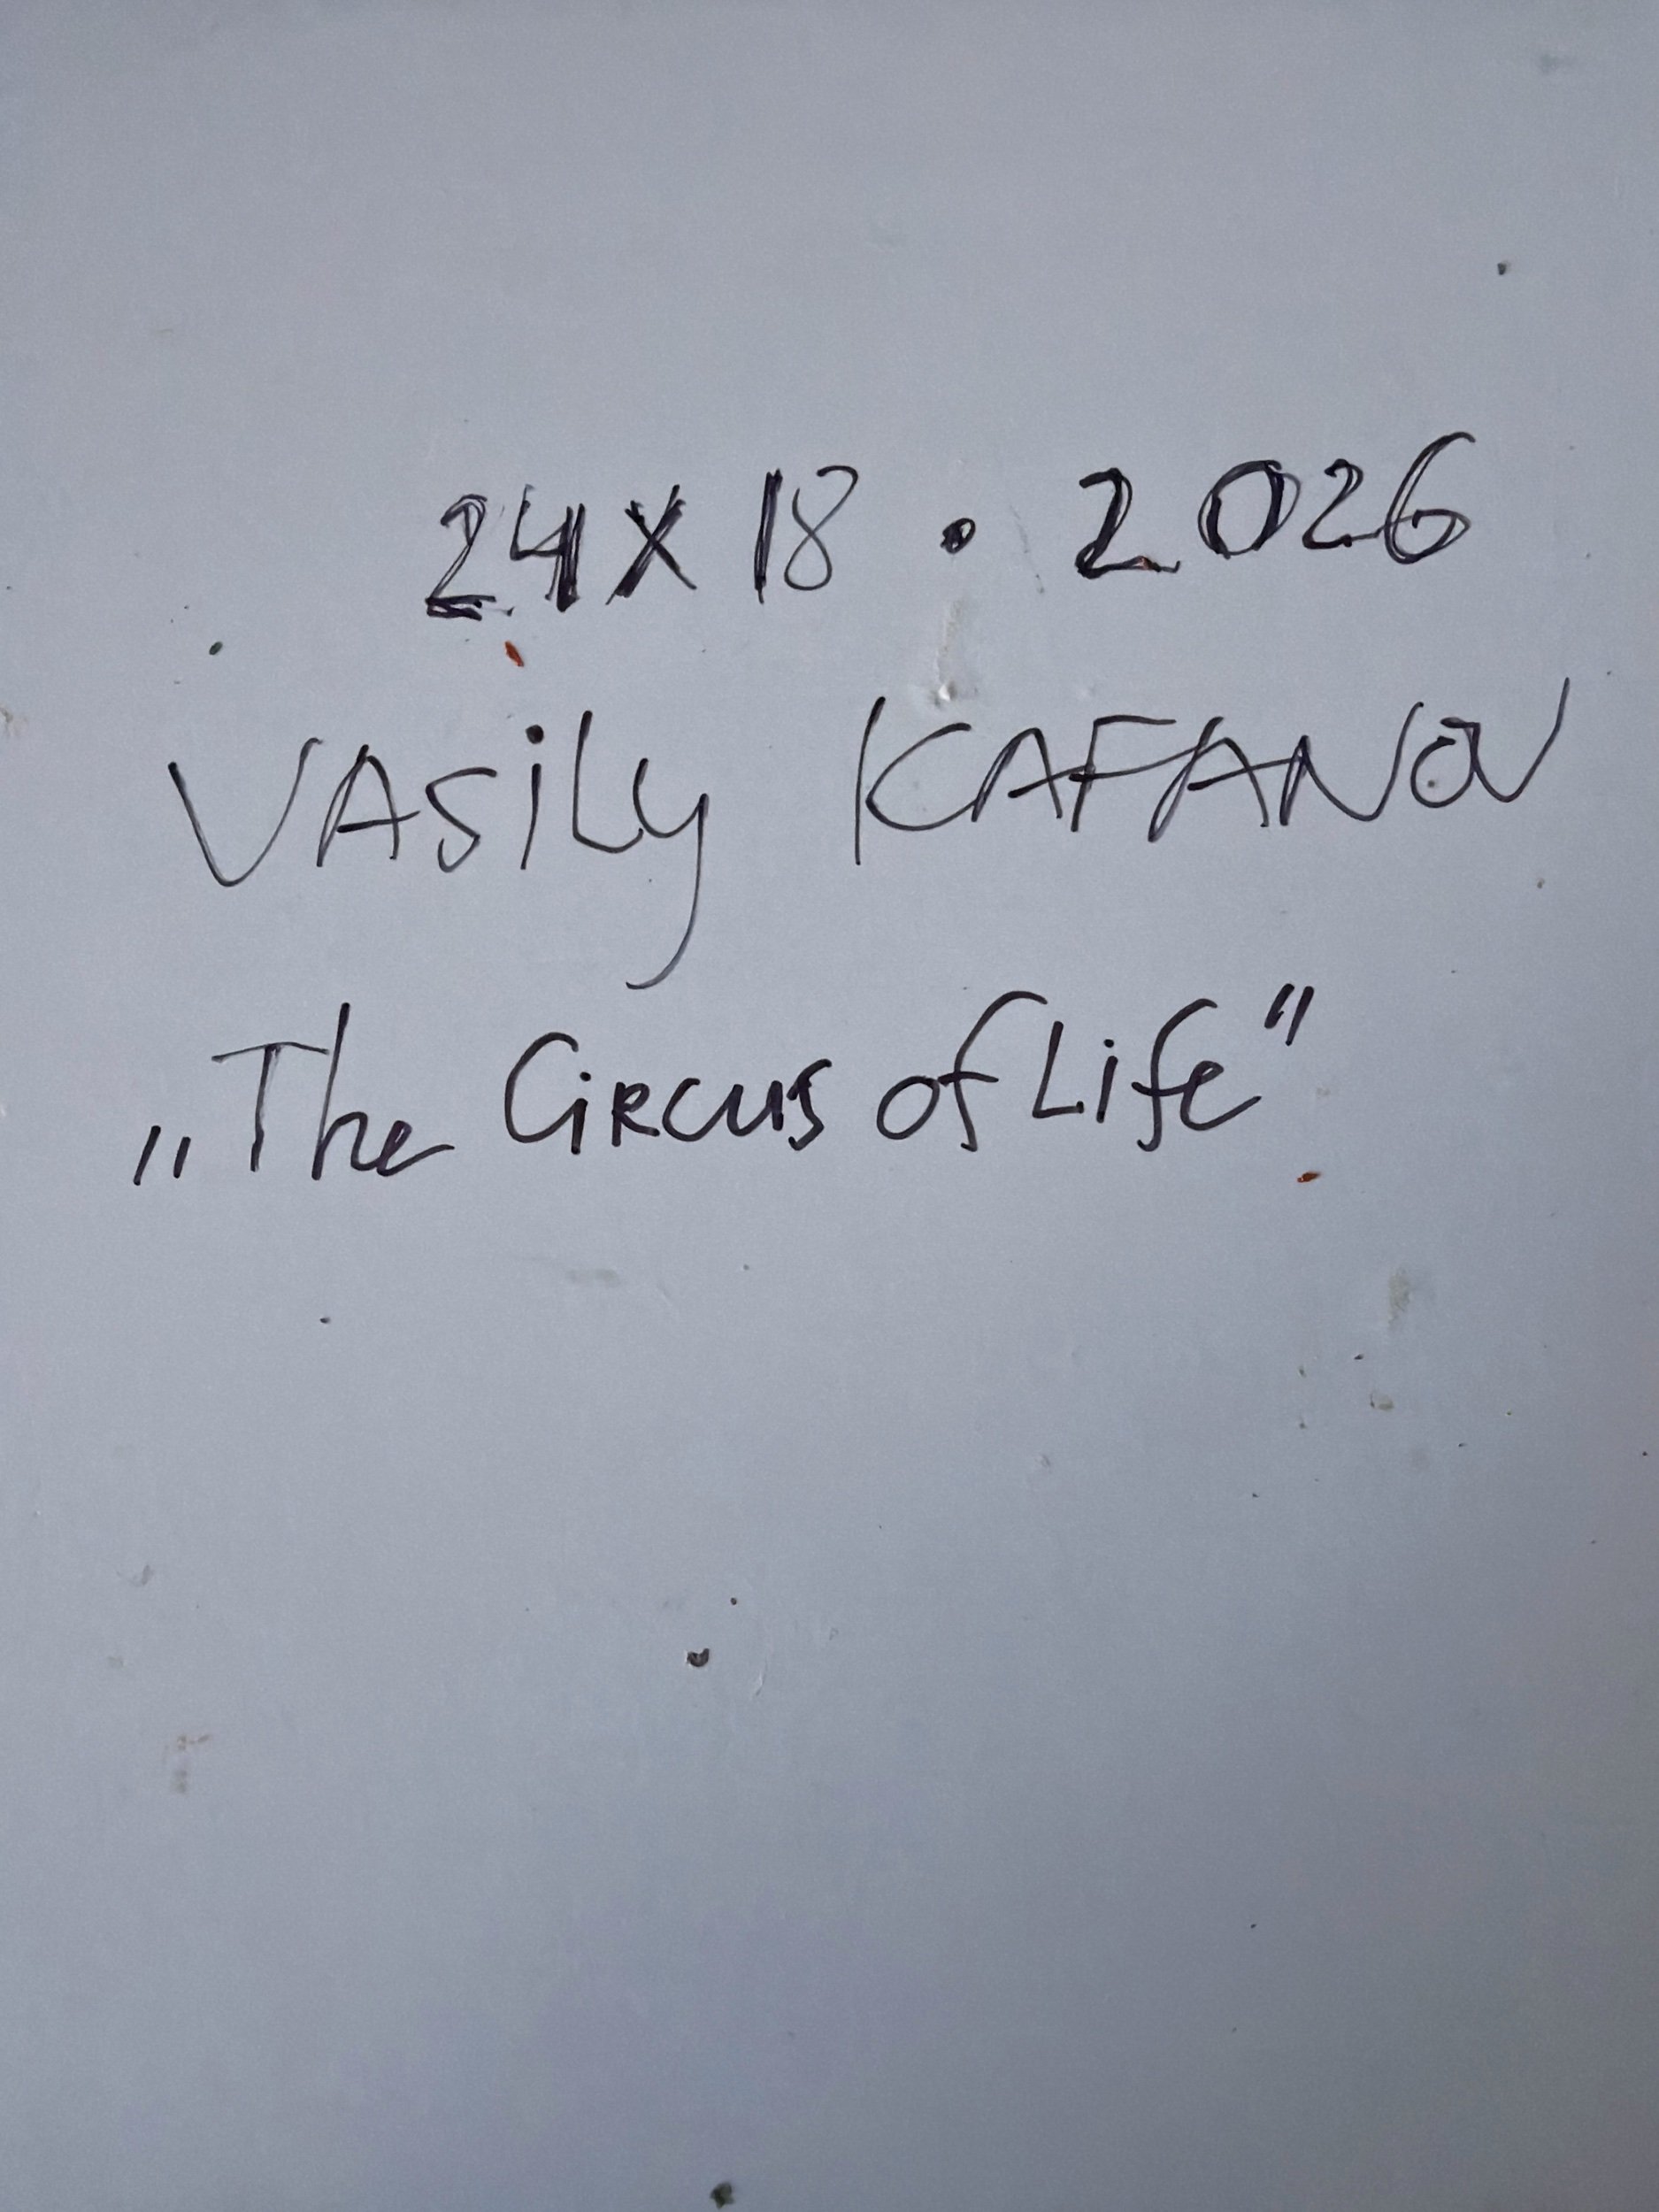 24 X 18 • 2026
VASiLy KAFANOV
„The CiRcus of Life"